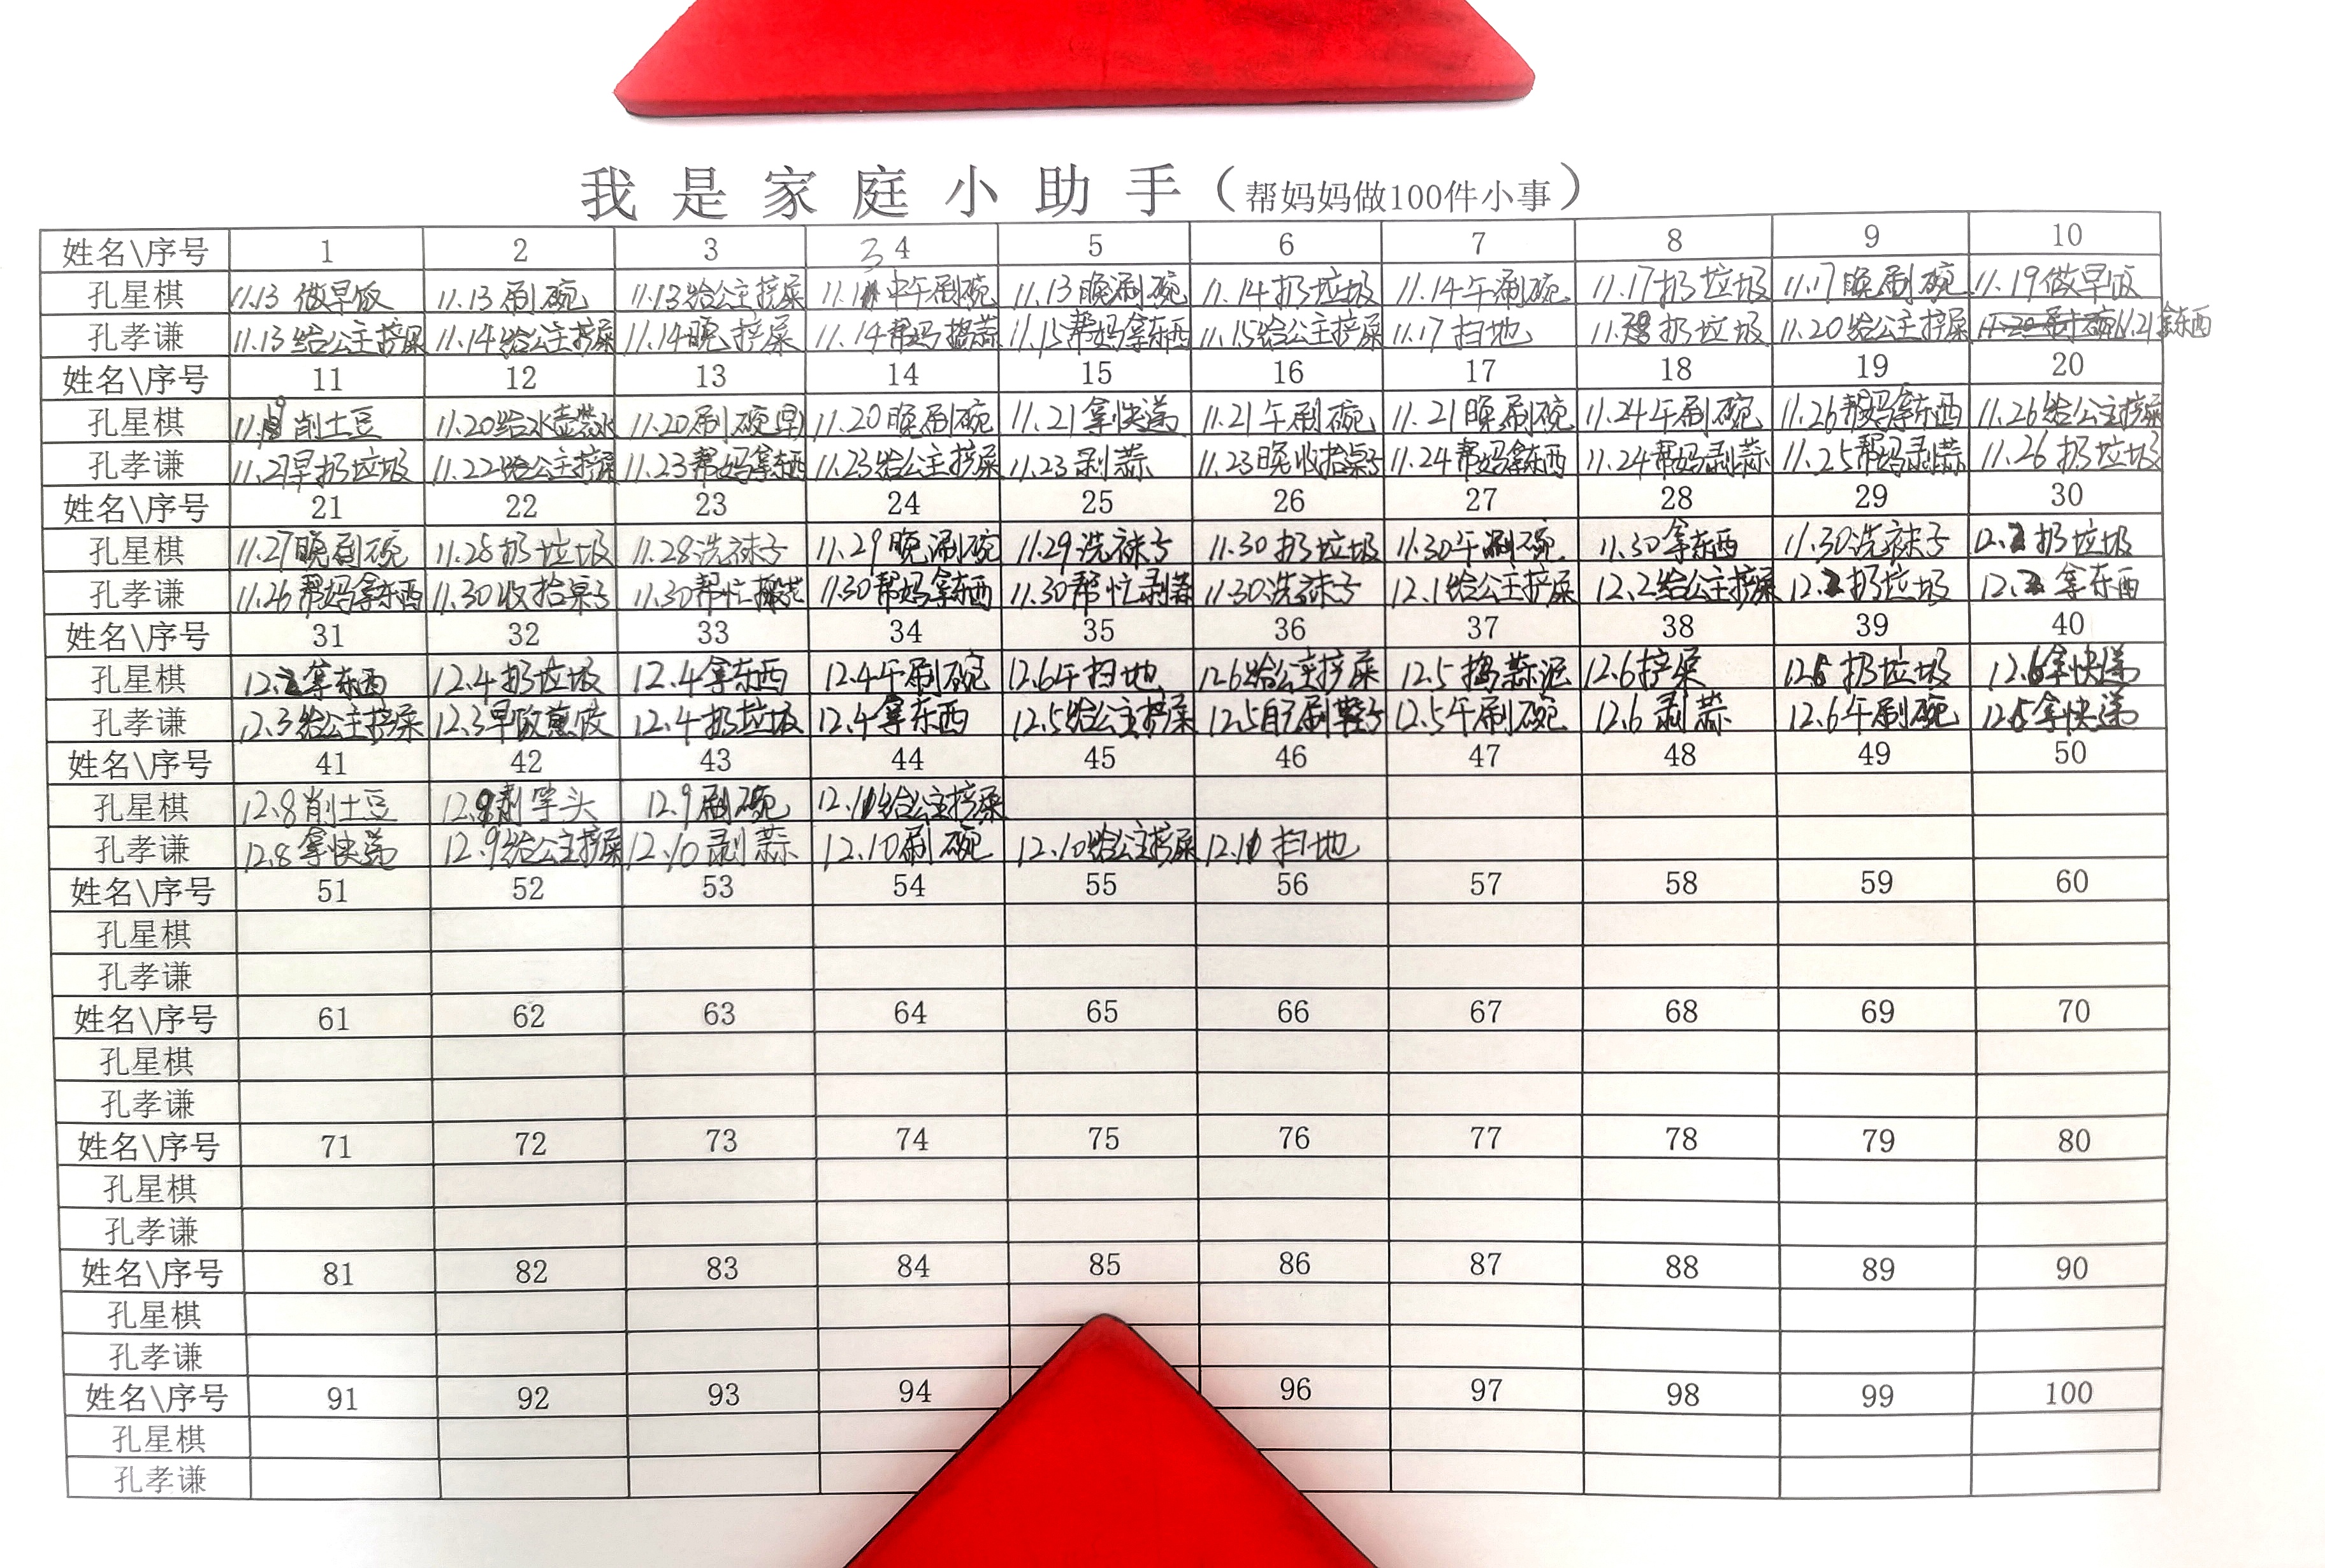 我是家庭小助手（帮妈妈做100件小事）
姓名\序号 1 2 3 3 4 5 6 7 8 9 10
孔星棋 11.13 做早饭 11.13 刷碗 11.13给公主挤屎 中午刷碗 11.13晚刷碗 11.14扔垃圾 11.14午刷碗 11.17扔垃圾 11.17晚刷碗 11.19做早饭
孔孝谦 11.13给公主挤屎 11.14给公主挤屎 11.14晚挤屎 11.14帮妈捣蒜 11.15帮妈拿东西 11.15给公主挤屎 11.17 扫地 扔垃圾 11.20给公主挤屎 11.21拿东西
姓名\序号 11 12 13 14 15 16 17 18 19 20
孔星棋 削土豆 11.20给水壶装水 11.20刷碗早 11.20晚刷碗 11.21拿快递 11.21午刷碗 11.21晚刷碗 11.24午刷碗 11.26帮妈拿东西 11.26给公主挤屎
孔孝谦 11.21早扔垃圾 11.22给公主挤屎 11.23帮妈拿东西 11.23给公主挤屎 11.23 剥蒜 11.23晚收拾桌子 11.24帮妈拿东西 11.24帮妈剥蒜 11.25帮妈剥蒜 11.26扔垃圾
姓名\序号 21 22 23 24 25 26 27 28 29 30
孔星棋 11.27晚刷碗 11.28扔垃圾 11.28洗袜子 11.29晚刷碗 11.29洗袜子 11.30扔垃圾 11.30午刷碗 11.30拿东西 11.30洗袜子 12.2扔垃圾
孔孝谦 11.26帮妈拿东西 11.30收拾桌子 11.30帮忙 11.30帮妈拿东西 11.30帮忙剥蒜 11.30洗袜子 12.1给公主挤屎 12.2给公主挤屎 12.2扔垃圾 12.2拿东西
姓名\序号 31 32 33 34 35 36 37 38 39 40
孔星棋 12.2拿东西 12.4扔垃圾 12.4拿东西 12.4午刷碗 12.6午扫地 12.6给公主挤屎 12.5捣蒜泥 12.6挤屎 扔垃圾 12.6拿快递
孔孝谦 12.3给公主挤屎 12.3早饭煎饺 12.4扔垃圾 12.4拿东西 12.5给公主挤屎 12.5自己刷鞋子 12.5午刷碗 12.6剥蒜 12.6午刷碗 拿快递
姓名\序号 41 42 43 44 45 46 47 48 49 50
孔星棋 12.8削土豆 芋头 12.9刷碗 12.11给公主挤屎
孔孝谦 12.8拿快递 12.9给公主挤屎 12.10剥蒜 12.10刷碗 12.10给公主挤屎 12.11扫地
姓名\序号 51 52 53 54 55 56 57 58 59 60
孔星棋
孔孝谦
姓名\序号 61 62 63 64 65 66 67 68 69 70
孔星棋
孔孝谦
姓名\序号 71 72 73 74 75 76 77 78 79 80
孔星棋
孔孝谦
姓名\序号 81 82 83 84 85 86 87 88 89 90
孔星棋
孔孝谦
姓名\序号 91 92 93 94 96 97 98 99 100
孔星棋
孔孝谦